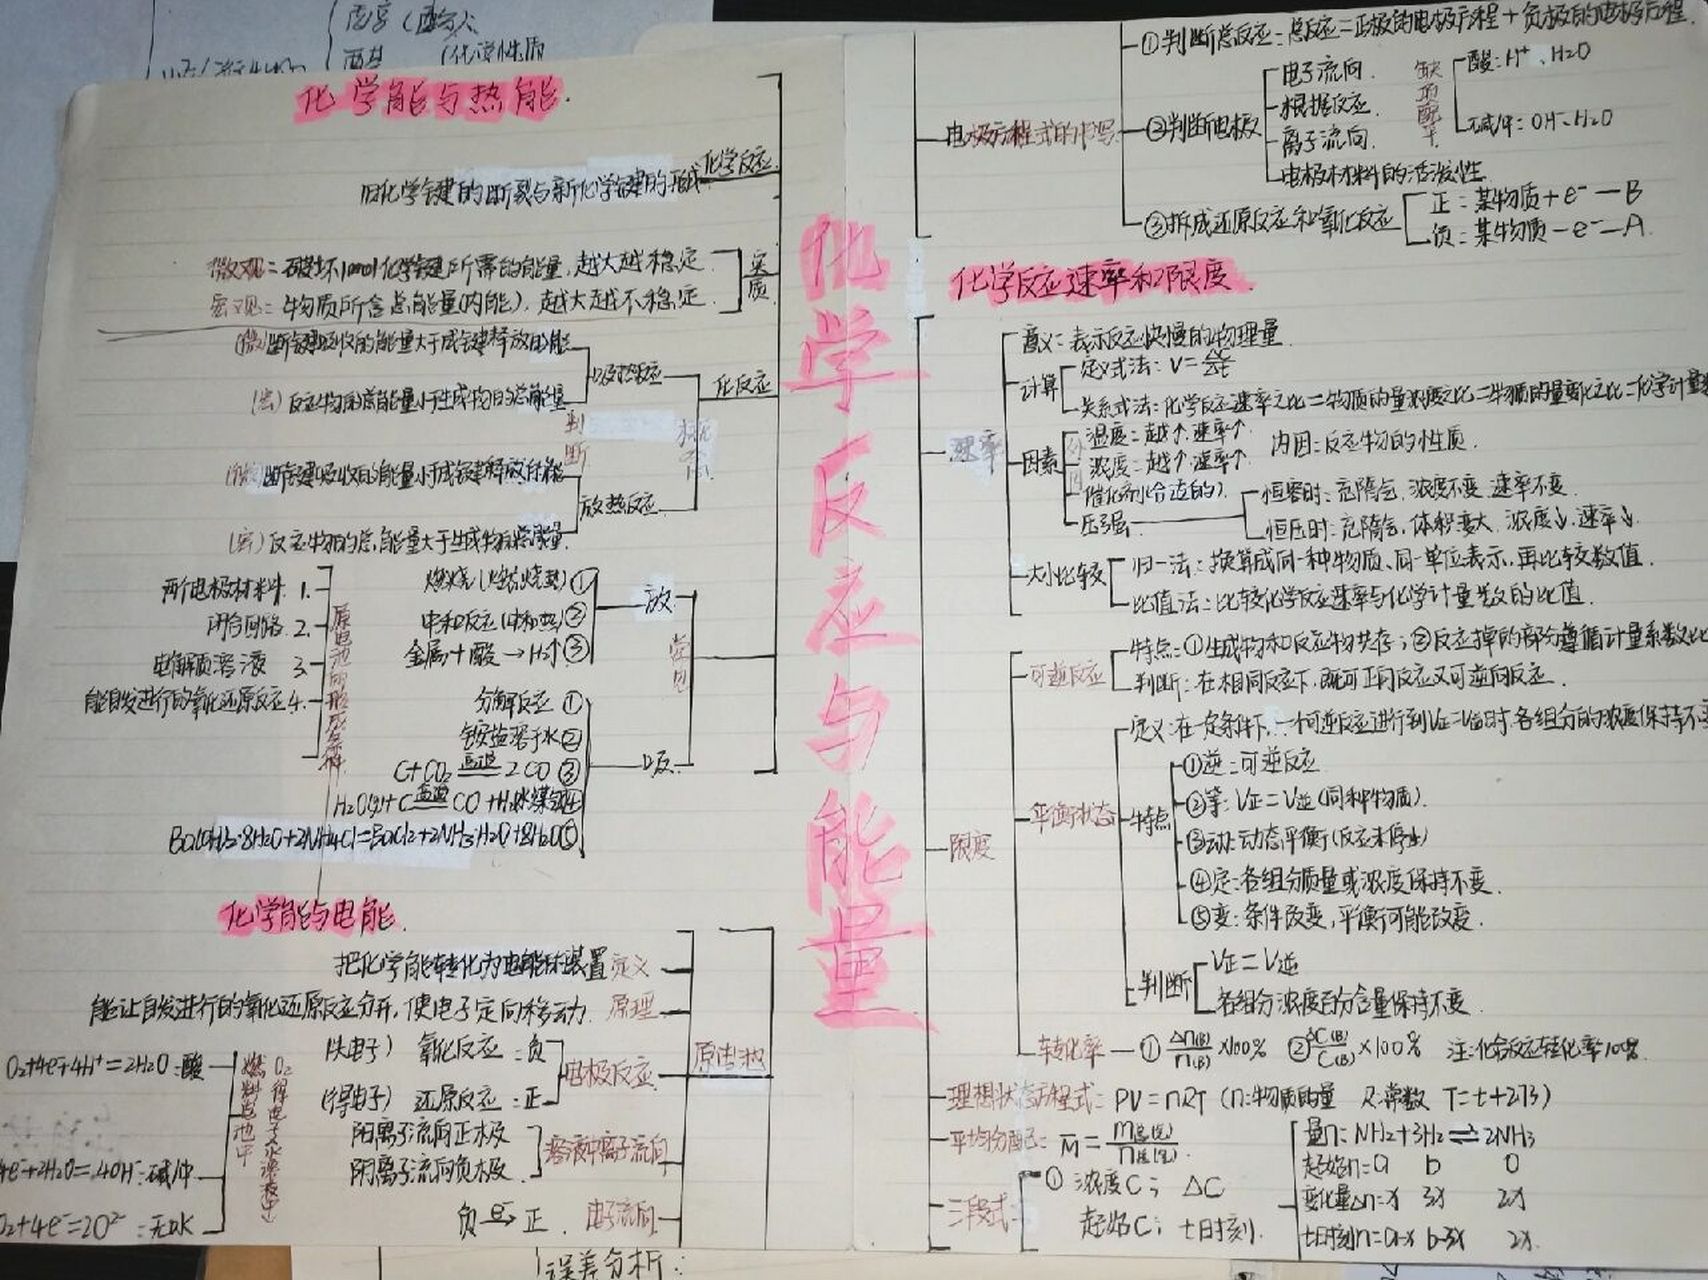 化学反应与能量
化学能与热能.
化学反应
旧化学键的断裂与新化学键的形成
实质
微观：破坏1mol化学键所需的能量,越大越稳定
宏观：物质所含总能量(内能),越大越不稳定.
化反应
吸热反应
(微)断键吸收的能量大于成键释放的能
(宏)反应物的总能量小于生成物的总能量
判断
放热反应
(微)断键吸收的能量小于成键释放的能
(宏)反应物的总能量大于生成物总能量.
常见
放
燃烧(燃烧热)①
中和反应(中和热)②
金属+酸→H₂↑③
吸
分解反应①
铵盐溶于水②
C+CO₂ 高温 2CO③
H₂O(g)+C 高温 CO+H₂水煤气④
Ba(OH)₂·8H₂O+2NH₄Cl=BaCl₂+2NH₃·H₂O+8H₂O⑤
原电池的形成条件
两个电极材料. 1.
闭合回路. 2.
电解质溶液 3.
能自发进行的氧化还原反应4.
化学能与电能.
原电池
把化学能转化为电能的装置 定义
能让自发进行的氧化还原反应分开,使电子定向移动. 原理
电极反应
(失电子) 氧化反应：负
(得电子) 还原反应：正
溶液中离子流向
阳离子流向正极
阴离子流向负极.
负 e⁻→ 正. 电子流向
燃料电池中
O₂+4e⁻+4H⁺=2H₂O：酸
4e⁻+2H₂O=4OH⁻：碱/中
O₂+4e⁻=2O²⁻：无水
电极方程式的书写
①判断总反应：总反应=正极的电极方程+负极的电极方程.
②判断电极
电子流向.
根据反应.
离子流向.
电极材料的活泼性
缺项配平
酸：H⁺、H₂O
碱/中：OH⁻、H₂O
③拆成还原反应和氧化反应
正：某物质+e⁻—B
负：某物质−e⁻—A
化学反应速率和限度.
速率
意义：表示反应快慢的物理量
计算
定义式法：V=Δc/Δt
关系式法：化学反应速率之比=物质的量浓度之比=物质的量变化之比=化学计量数
因素
外因
温度：越↑,速率↑
浓度：越↑,速率↑
内因：反应物的性质.
催化剂(合适的)
压强
恒容时：充隋气,浓度不变 速率不变.
恒压时：充隋气,体积变大.浓度↓.速率↓.
大小比较
归一法：换算成同一种物质、同一单位表示,再比较数值.
比值法：比较化学反应速率与化学计量数的比值.
限度
可逆反应
特点：①生成物和反应物共存；②反应掉的部分遵循计量系数比
判断：在相同反应下,既可正向反应又可逆向反应.
平衡状态
定义：在一定条件下,一个可逆反应进行到V正=V逆时,各组分的浓度保持不变
特点
①逆：可逆反应
②等：V正=V逆(同种物质).
③动：动态平衡(反应未停止)
④定：各组分质量或浓度保持不变.
⑤变：条件改变,平衡可能改变.
判断
V正=V逆
各组分浓度百分含量保持不变.
转化率—①Δn(B)/n(B)×100% ②ΔC(B)/C(B)×100% 注：化合反应转化率100%.
理想状态方程式：PV=nRT(n:物质的量 R:常数 T=t+273)
平均分子：M̄=m总(g)/n总(g).
三段式
①浓度C； ΔC
起始C； t时刻.
量n：NH₂+3H₂⇌2NH₃
起始n=a b 0
变化量Δn=x 3x 2x
t时刻n=a-x b-3x 2x.
误差分析：